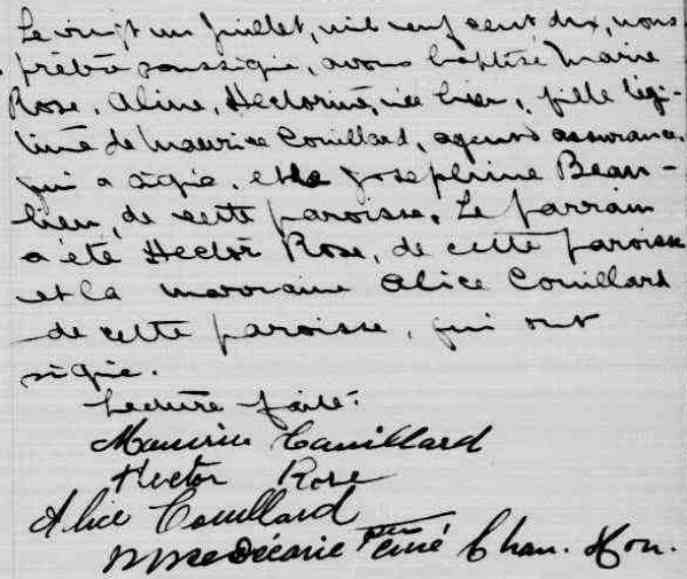 Le vingt un Juillet, mil neuf cent dix, nous
prêtre soussigné, avons baptisé Marie
Rose, Aline, Hectorine, née hier, fille légi-
time de Maurice Couillard, agent d'assurance,
qui a signé, et de Josephine Beau-
lieu, de cette paroisse. Le parrain
a été Hector Rose, de cette paroisse
et la marraine Alice Couillard
de cette paroisse, qui ont
signé.
Lecture faite.
Maurice Couillard
Hector Rose
Alice Couillard
Décarie Ptre Curé Chan. Hon.